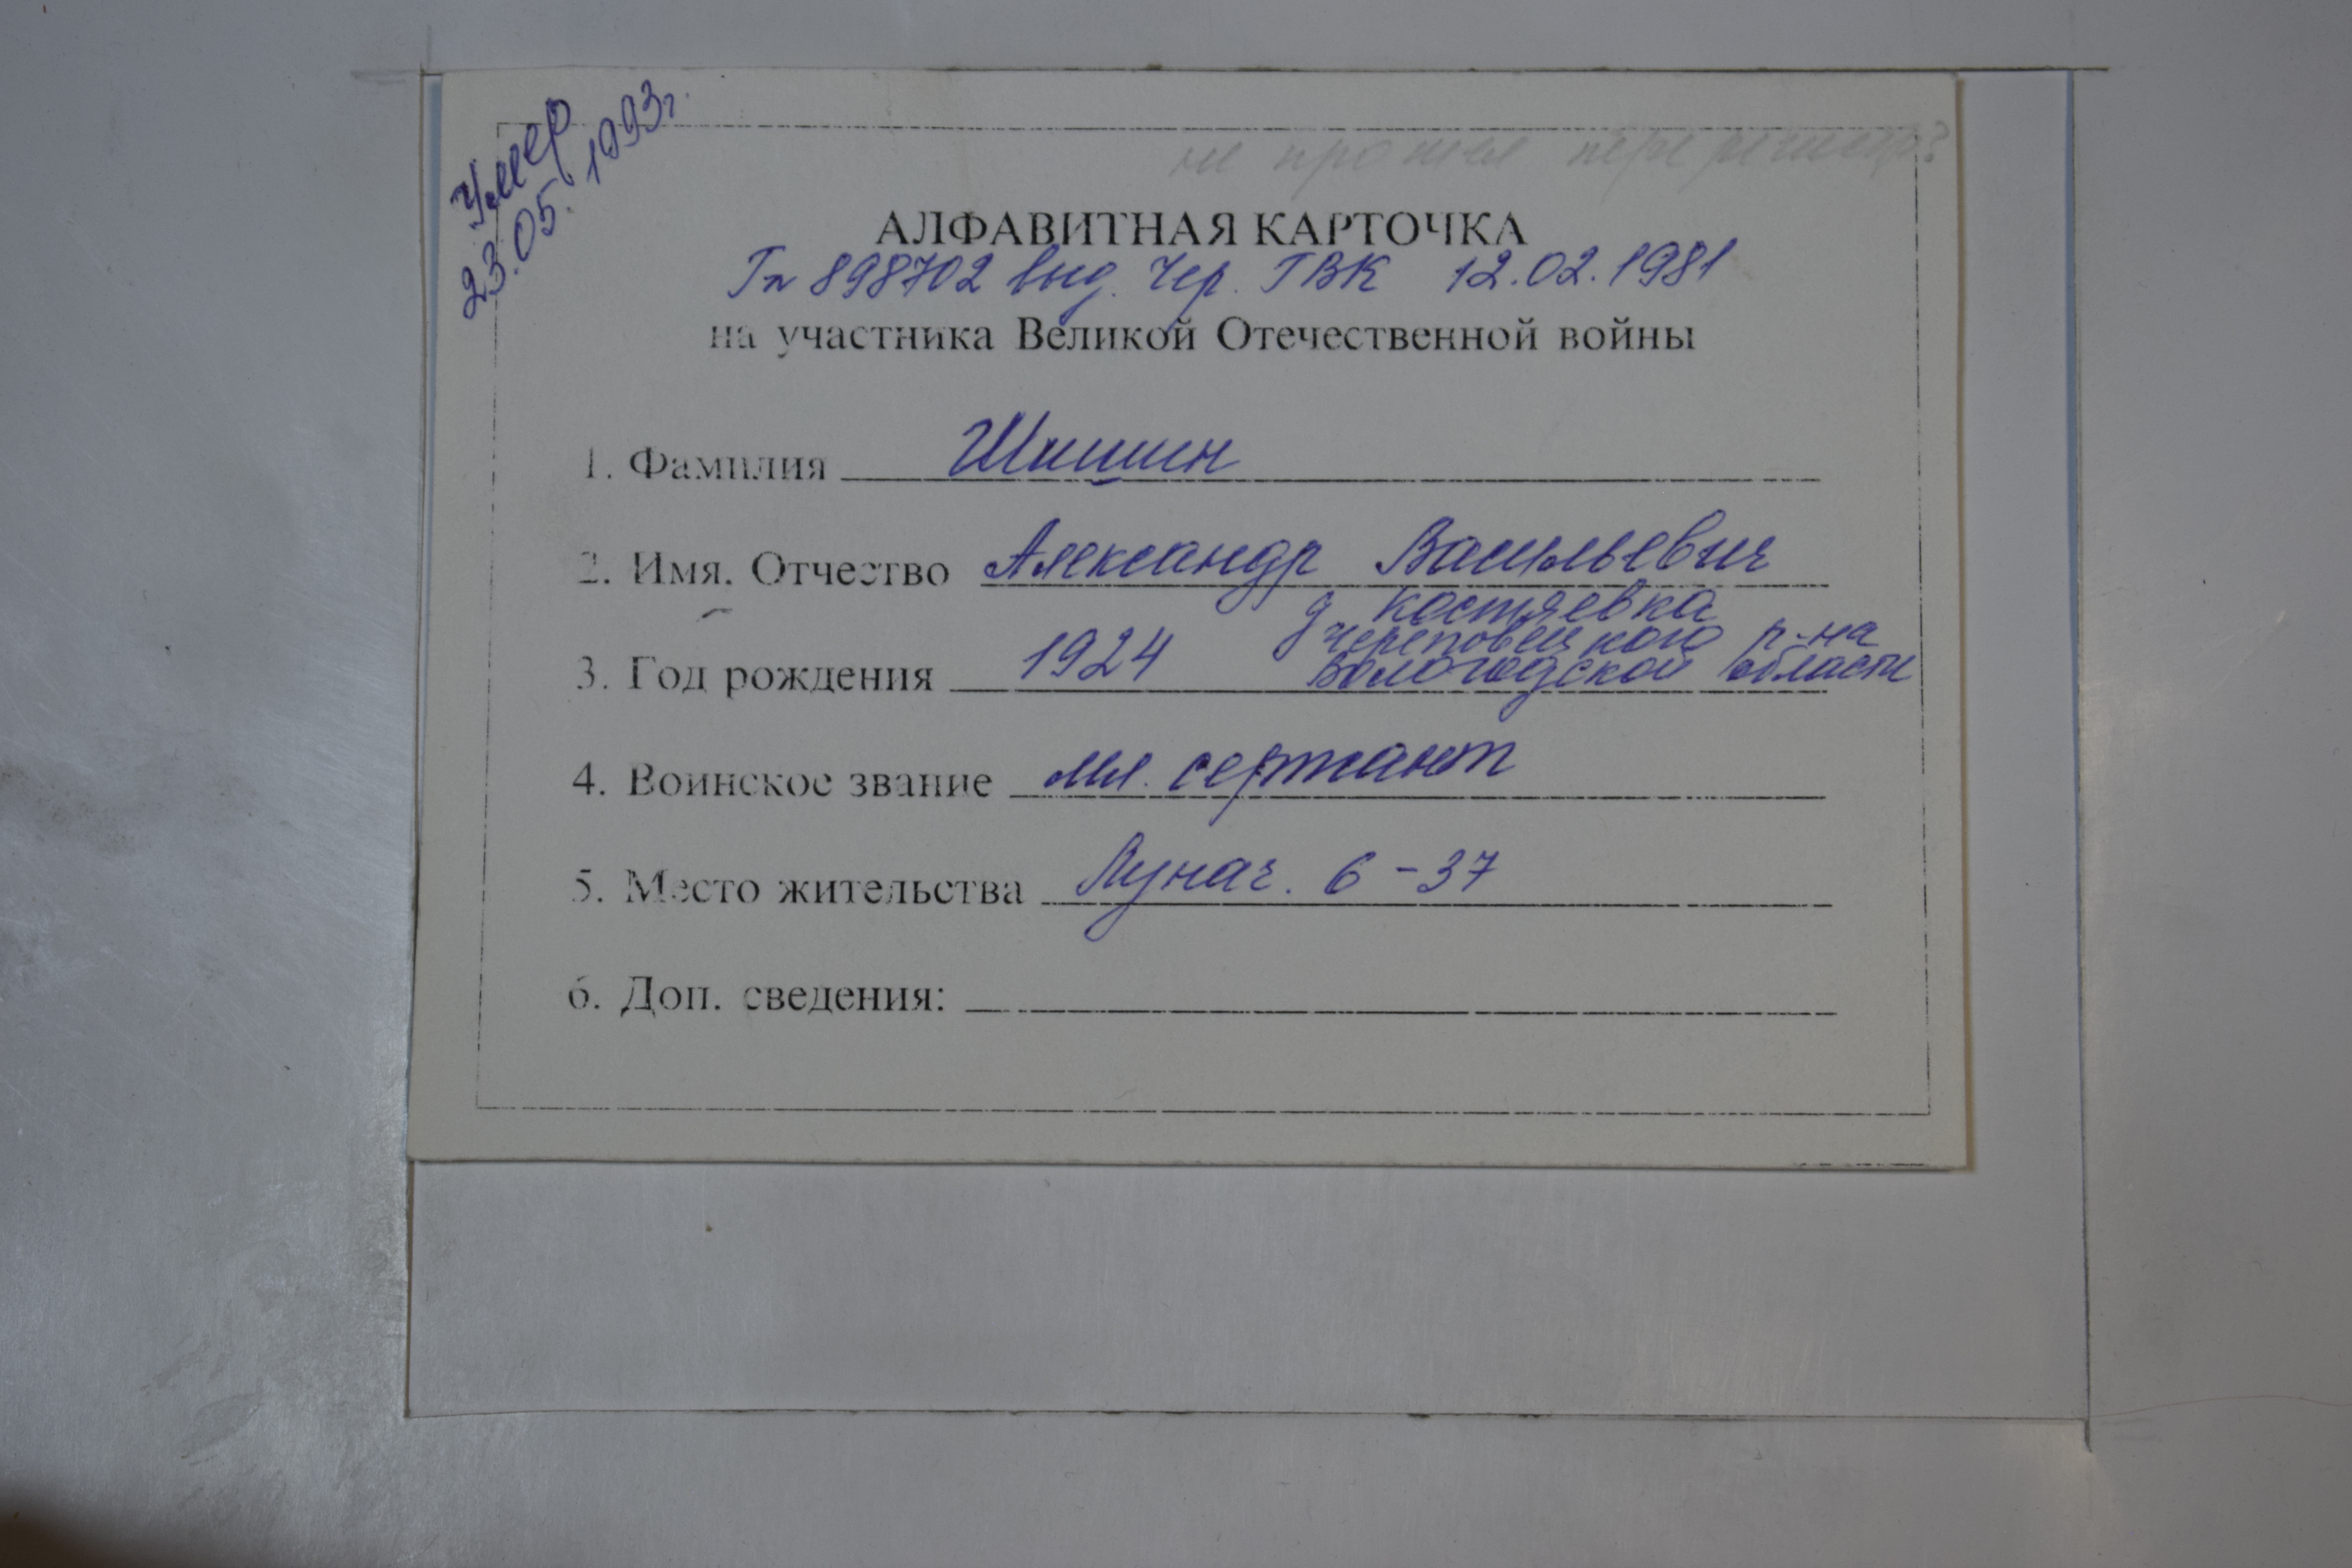 Умер
23.05.1993г.
не прошел перерегистр?
АЛФАВИТНАЯ КАРТОЧКА
Гп 898702 выд. Чер. ГВК 12.02.1981
на участника Великой Отечественной войны
1. Фамилия Шишин
2. Имя. Отчество Александр Васильевич
д Костяевка
Череповецкого р-на
3. Год рождения 1924 Вологодской области
4. Воинское звание мл. сержант
5. Место жительства Лунач. 6-37
6. Доп. сведения: